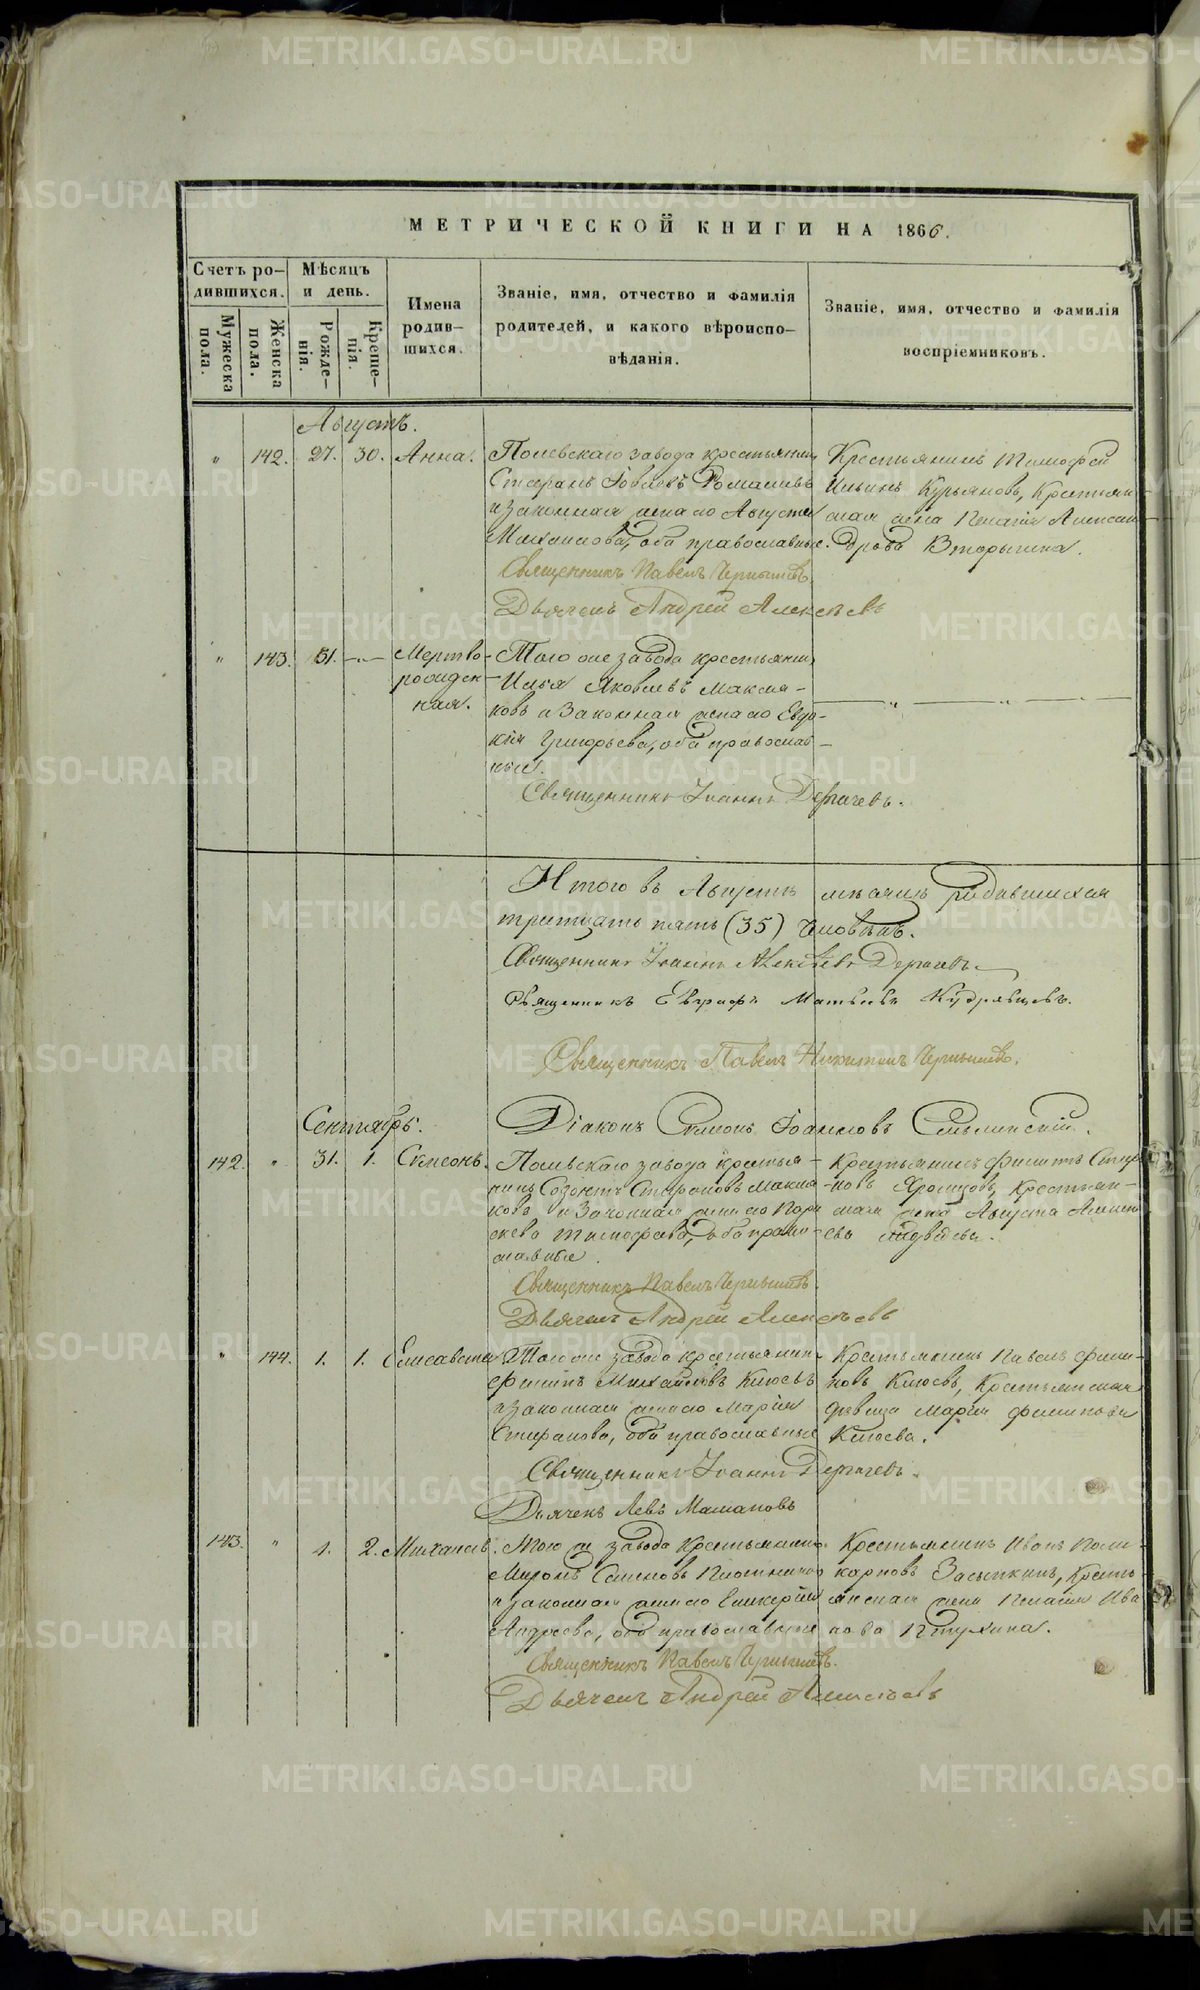 МЕТРИЧЕСКОЙ КНИГИ НА 1866.
Счетъ ро-
дившихся.
Мужеска
пола.
Женска
пола.
Мѣсяцъ
и день.
Рожде-
нія.
Креще-
нія.
Имена
родив-
шихся.
Званіе, имя, отчество и фамилія
родителей, и какого вѣроиспо-
вѣданія.
Званіе, имя, отчество и фамилія
воспріемниковъ.
Августъ.
" 142. 27. 30. Анна.
Полевскаго завода крестьянинъ
Стефанъ Іовлевъ
и законная жена его Августа
Михаилова, оба православные.
Священникъ Павелъ Чернышевъ.
Дьячекъ Андрей Алексѣевъ
Крестьянинъ Тимофей
Ильинъ Курьяновъ, Крестьян-
ская жена Пелагія Алексан-
дрова Вторыгина.
" 143. 31. —"— Мертво-
рожден-
ная.
Того же завода крестьянинъ
Илья Яковлевъ Максия-
ковъ и Законная жена его Евдо-
кія Григорьева, оба православ-
ные.
Священникъ Іоаннъ Дергачевъ.
— " — " —
Итого въ Августѣ мѣсяцѣ родившихся
тритцать пять (35) человѣкъ.
Священникъ Іоаннъ Алексѣевъ Дергачевъ.
Священникъ Евграфъ Матвѣевъ Кудрявцевъ.
Священникъ Павелъ Никитинъ Чернышевъ.
Діаконъ Симеонъ Іоанновъ
Сентябрь.
142. " 31. 1. Симеонъ.
Полевскаго завода крестья-
нинъ Созонтъ Стефановъ
и Законная жена его
Тимофеева, оба право-
славные.
Священникъ Павелъ Чернышевъ.
Дьячекъ Андрей Алексѣевъ
Крестьянинъ Филиппъ Стефа-
новъ Крестьян-
ская жена Августа
Медвѣдева.
" 144. 1. 1. Елисавета
Того же завода крестьянинъ
Филиппъ Михайловъ Клюевъ
и законная жена его Марія
Стефанова, оба православные
Священникъ Іоаннъ Дергачевъ.
Дьячекъ Левъ Мамановъ
Крестьянинъ Павелъ Филип-
повъ Клюевъ, Крестьянская
дѣвица Марія Филиппова
Клюева.
143. " 1. 2. Михаилъ.
Того же завода Крестьянинъ
Миронъ Семеновъ Плотниковъ
и законная жена его Гликерія
Андреева, оба православные
Священникъ Павелъ Чернышевъ.
Дьячекъ Андрей Алексѣевъ
Крестьянинъ Иванъ Поли-
карповъ Засыпкинъ, Кресть-
янская жена Пелагія Ива-
нова Птухина.